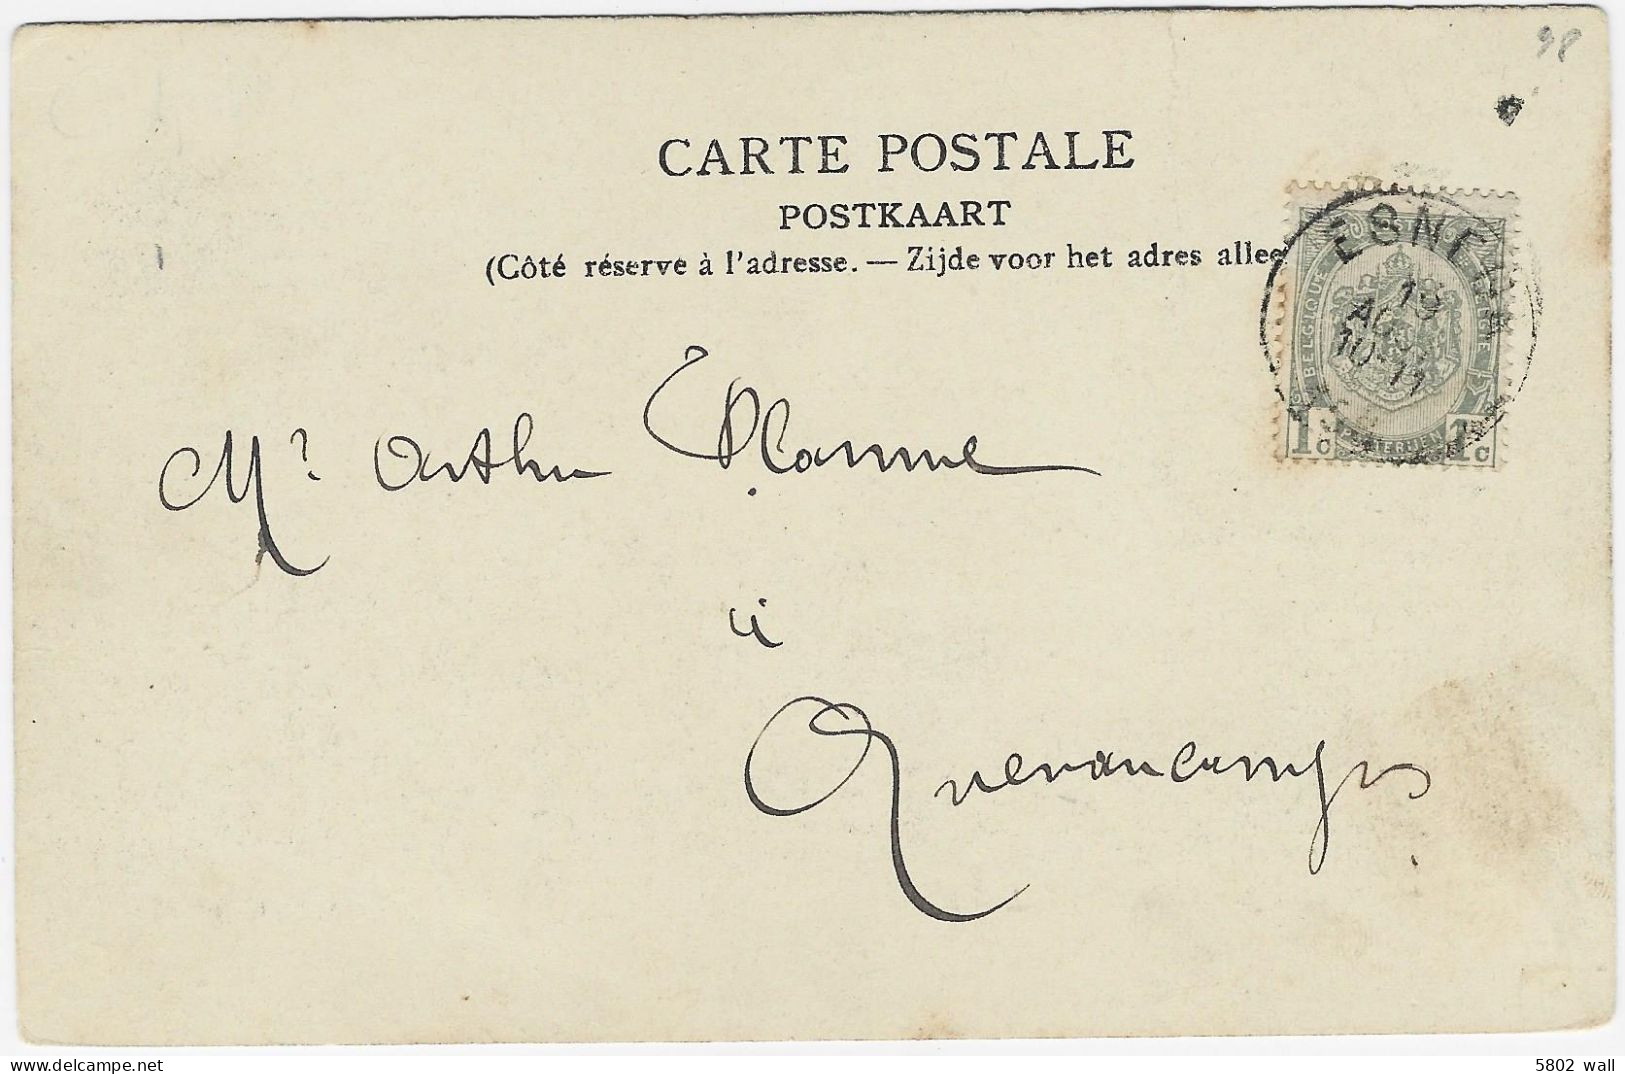 98
CARTE POSTALE
POSTKAART
(Côté réserve à l'adresse. — Zijde voor het adres allee
ESNE
19
10-11
BELGIQUE
BELGIE
1c 1c
Mr Arthur Planne
à
Quevaucamps
5802 wall